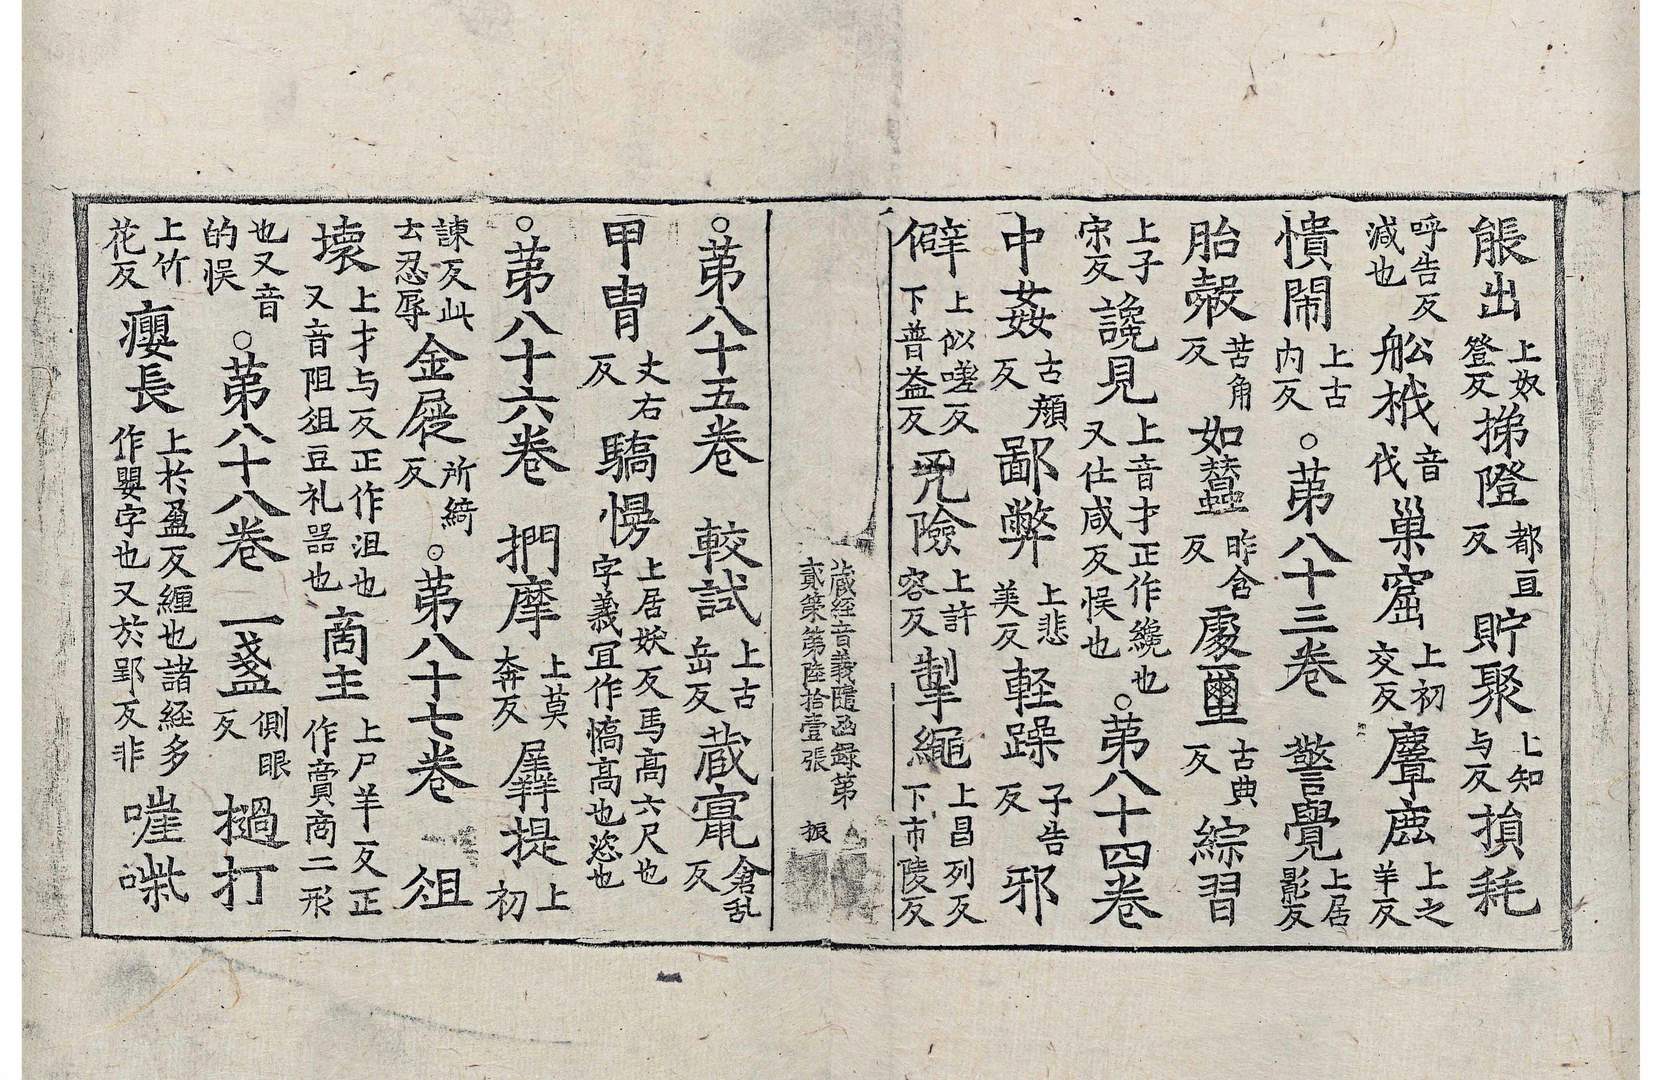 能出上奴登反梯隥都亘反貯聚上知与反損耗
呼告反減也舩栰音伐巢窟上初交反麞鹿上之羊反
憒閙上古内反○苐八十三卷警覺上居影反
胎㲉苦角反如蠶昨含反𮓙壐古典反綜習
上子宋反讒見上音才正作纔也又仕咸反悮也○苐八十四卷
中姦古顔反鄙弊上悲美反軽躁子告反邪
僻上似嗟反下普益反兇險上許容反掣繩上昌列反下市陵反
藏経音義隨函録第
貳策第陸拾壹張 振
○苐八十五卷 較試上古岳反蔵竄倉乱反
甲冑丈右反驕慢上居妖反馬高六尺也字義冝作憍高也恣也
○苐八十六卷 捫摩上莫奔反羼提上初
諫反此云忍辱金屣所綺反○苐八十七卷 俎
壞上才与反正作沮也又音阻俎豆礼器也商主上尸羊反正作賣商二形
也又音的悮○苐八十八卷 一盞側眼反撾打
上竹花反癭長上於盈反纏也諸経多作嬰字也又於郢反非嘊喍